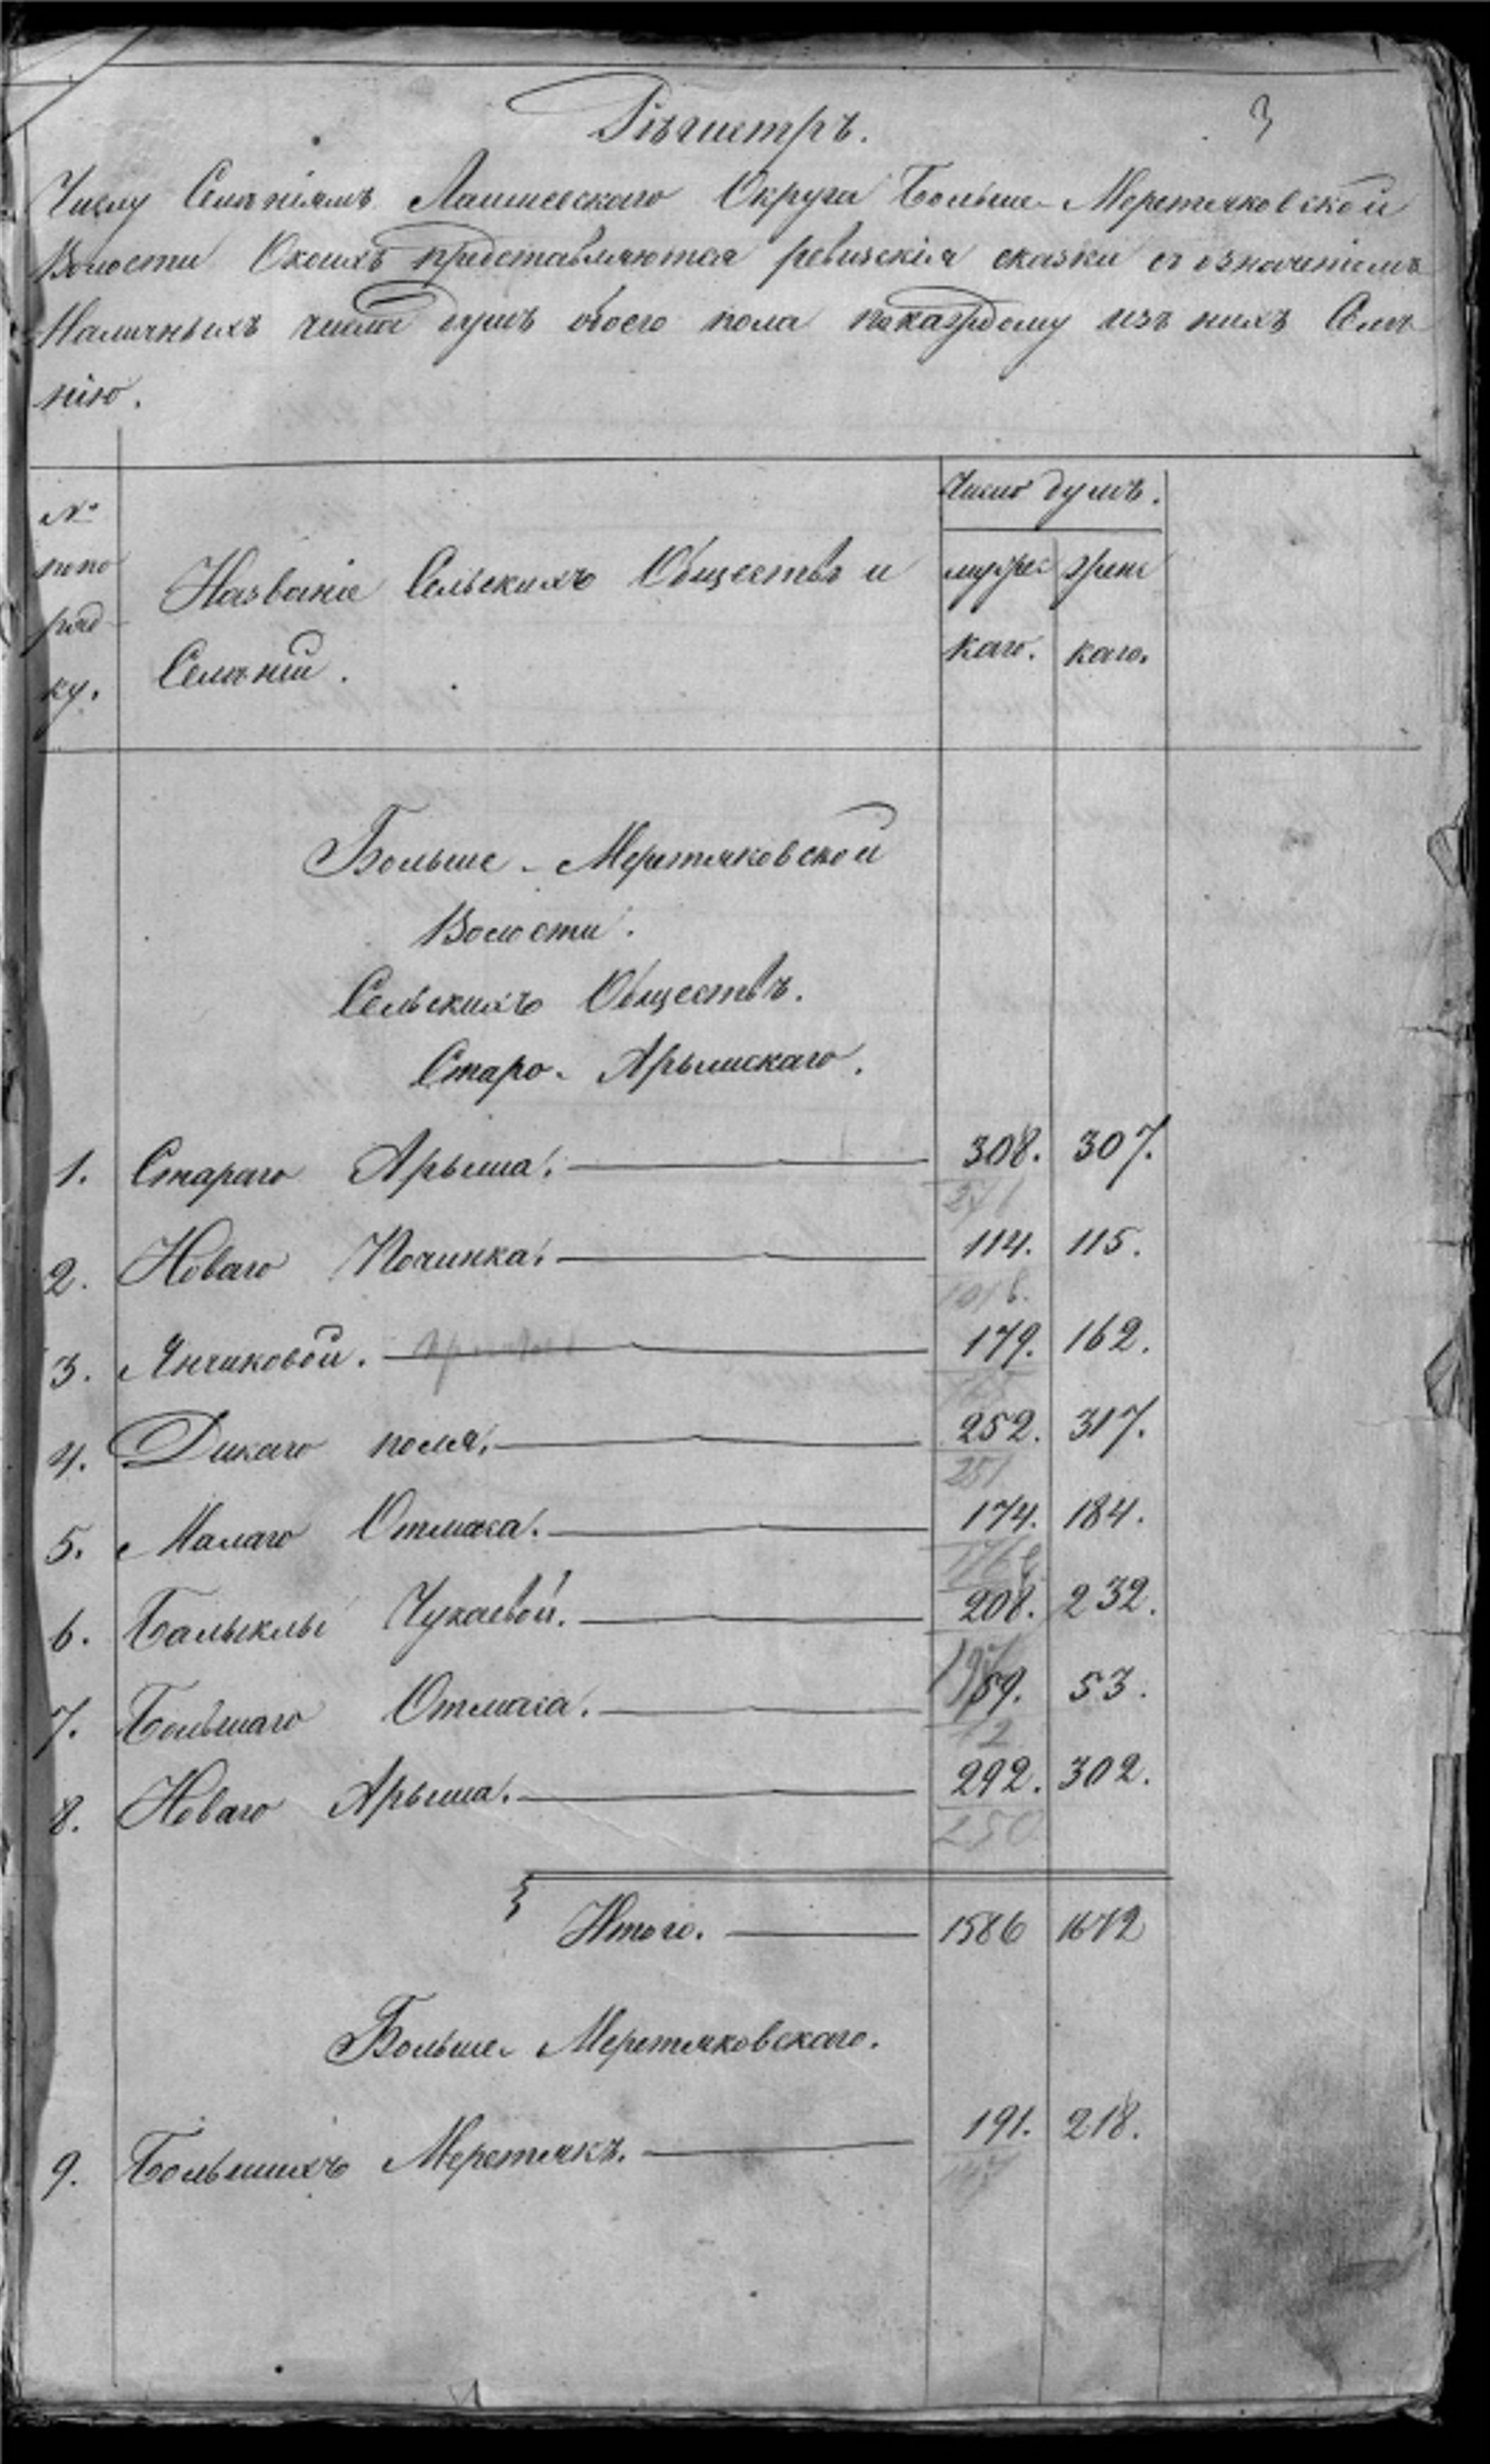 Регистръ.
3
Числу Селеніямъ Лаишевскаго Округа Больше-Меретяковской
Волости Окоихъ представляются ревизскія сказки съ означеніемъ
Наличныхъ числа душъ обоего пола покаждому изъ нихъ Селе
нію.
№ Названіе Сельскихъ Обществъ и Число душъ.
попо Селеній. мужес женс
ряд каго. каго.
ку.
Больше-Меретяковской
Волости.
Сельскихъ Обществъ.
Старо-Арышскаго.
1. Стараго Арыша. 308. 307.
271
2. Новаго Починка. 114. 115.
3. Янчиковой. 179. 162.
4. Дикаго поля. 252. 317.
251
5. Малаго Отмаса. 174. 184.
6. Балыклы Чукаевой. 208. 232.
7. Большаго Отмаса. 59. 53.
8. Новаго Арыша. 292. 302.
250
Итого. 1586 1672
Больше-Меретяковскаго.
9. Большихъ Меретякъ. 191. 218.